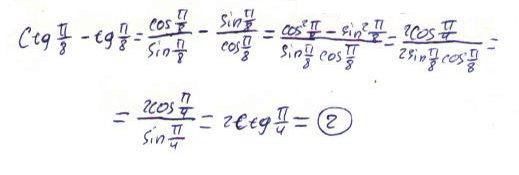 Ctg π/8 - tg π/8 = cos π/8 / sin π/8 - sin π/8 / cos π/8 = cos² π/8 - sin² π/8 / sin π/8 cos π/8 = 2cos π/4 / 2sin π/8 cos π/8 =
= 2cos π/4 / sin π/4 = 2Ctg π/4 = 2